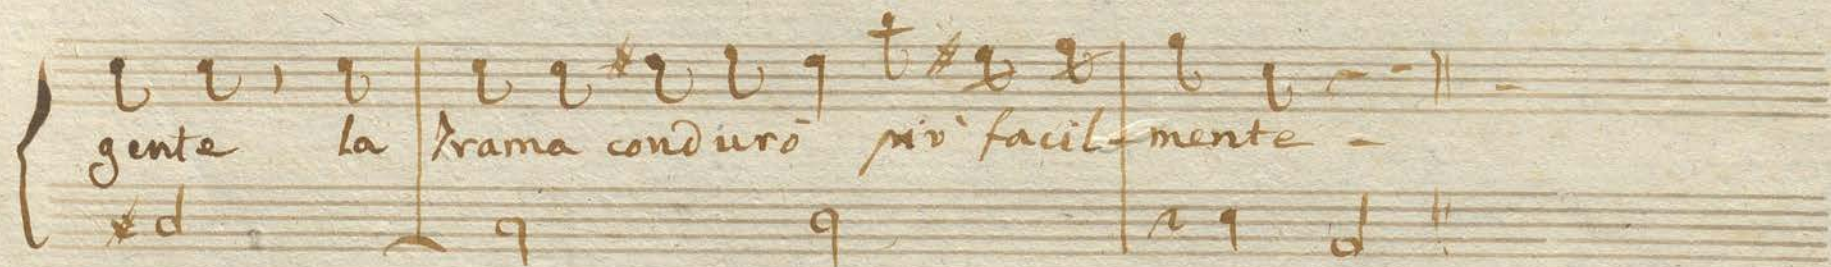 gente la trama condurò più facil-mente -